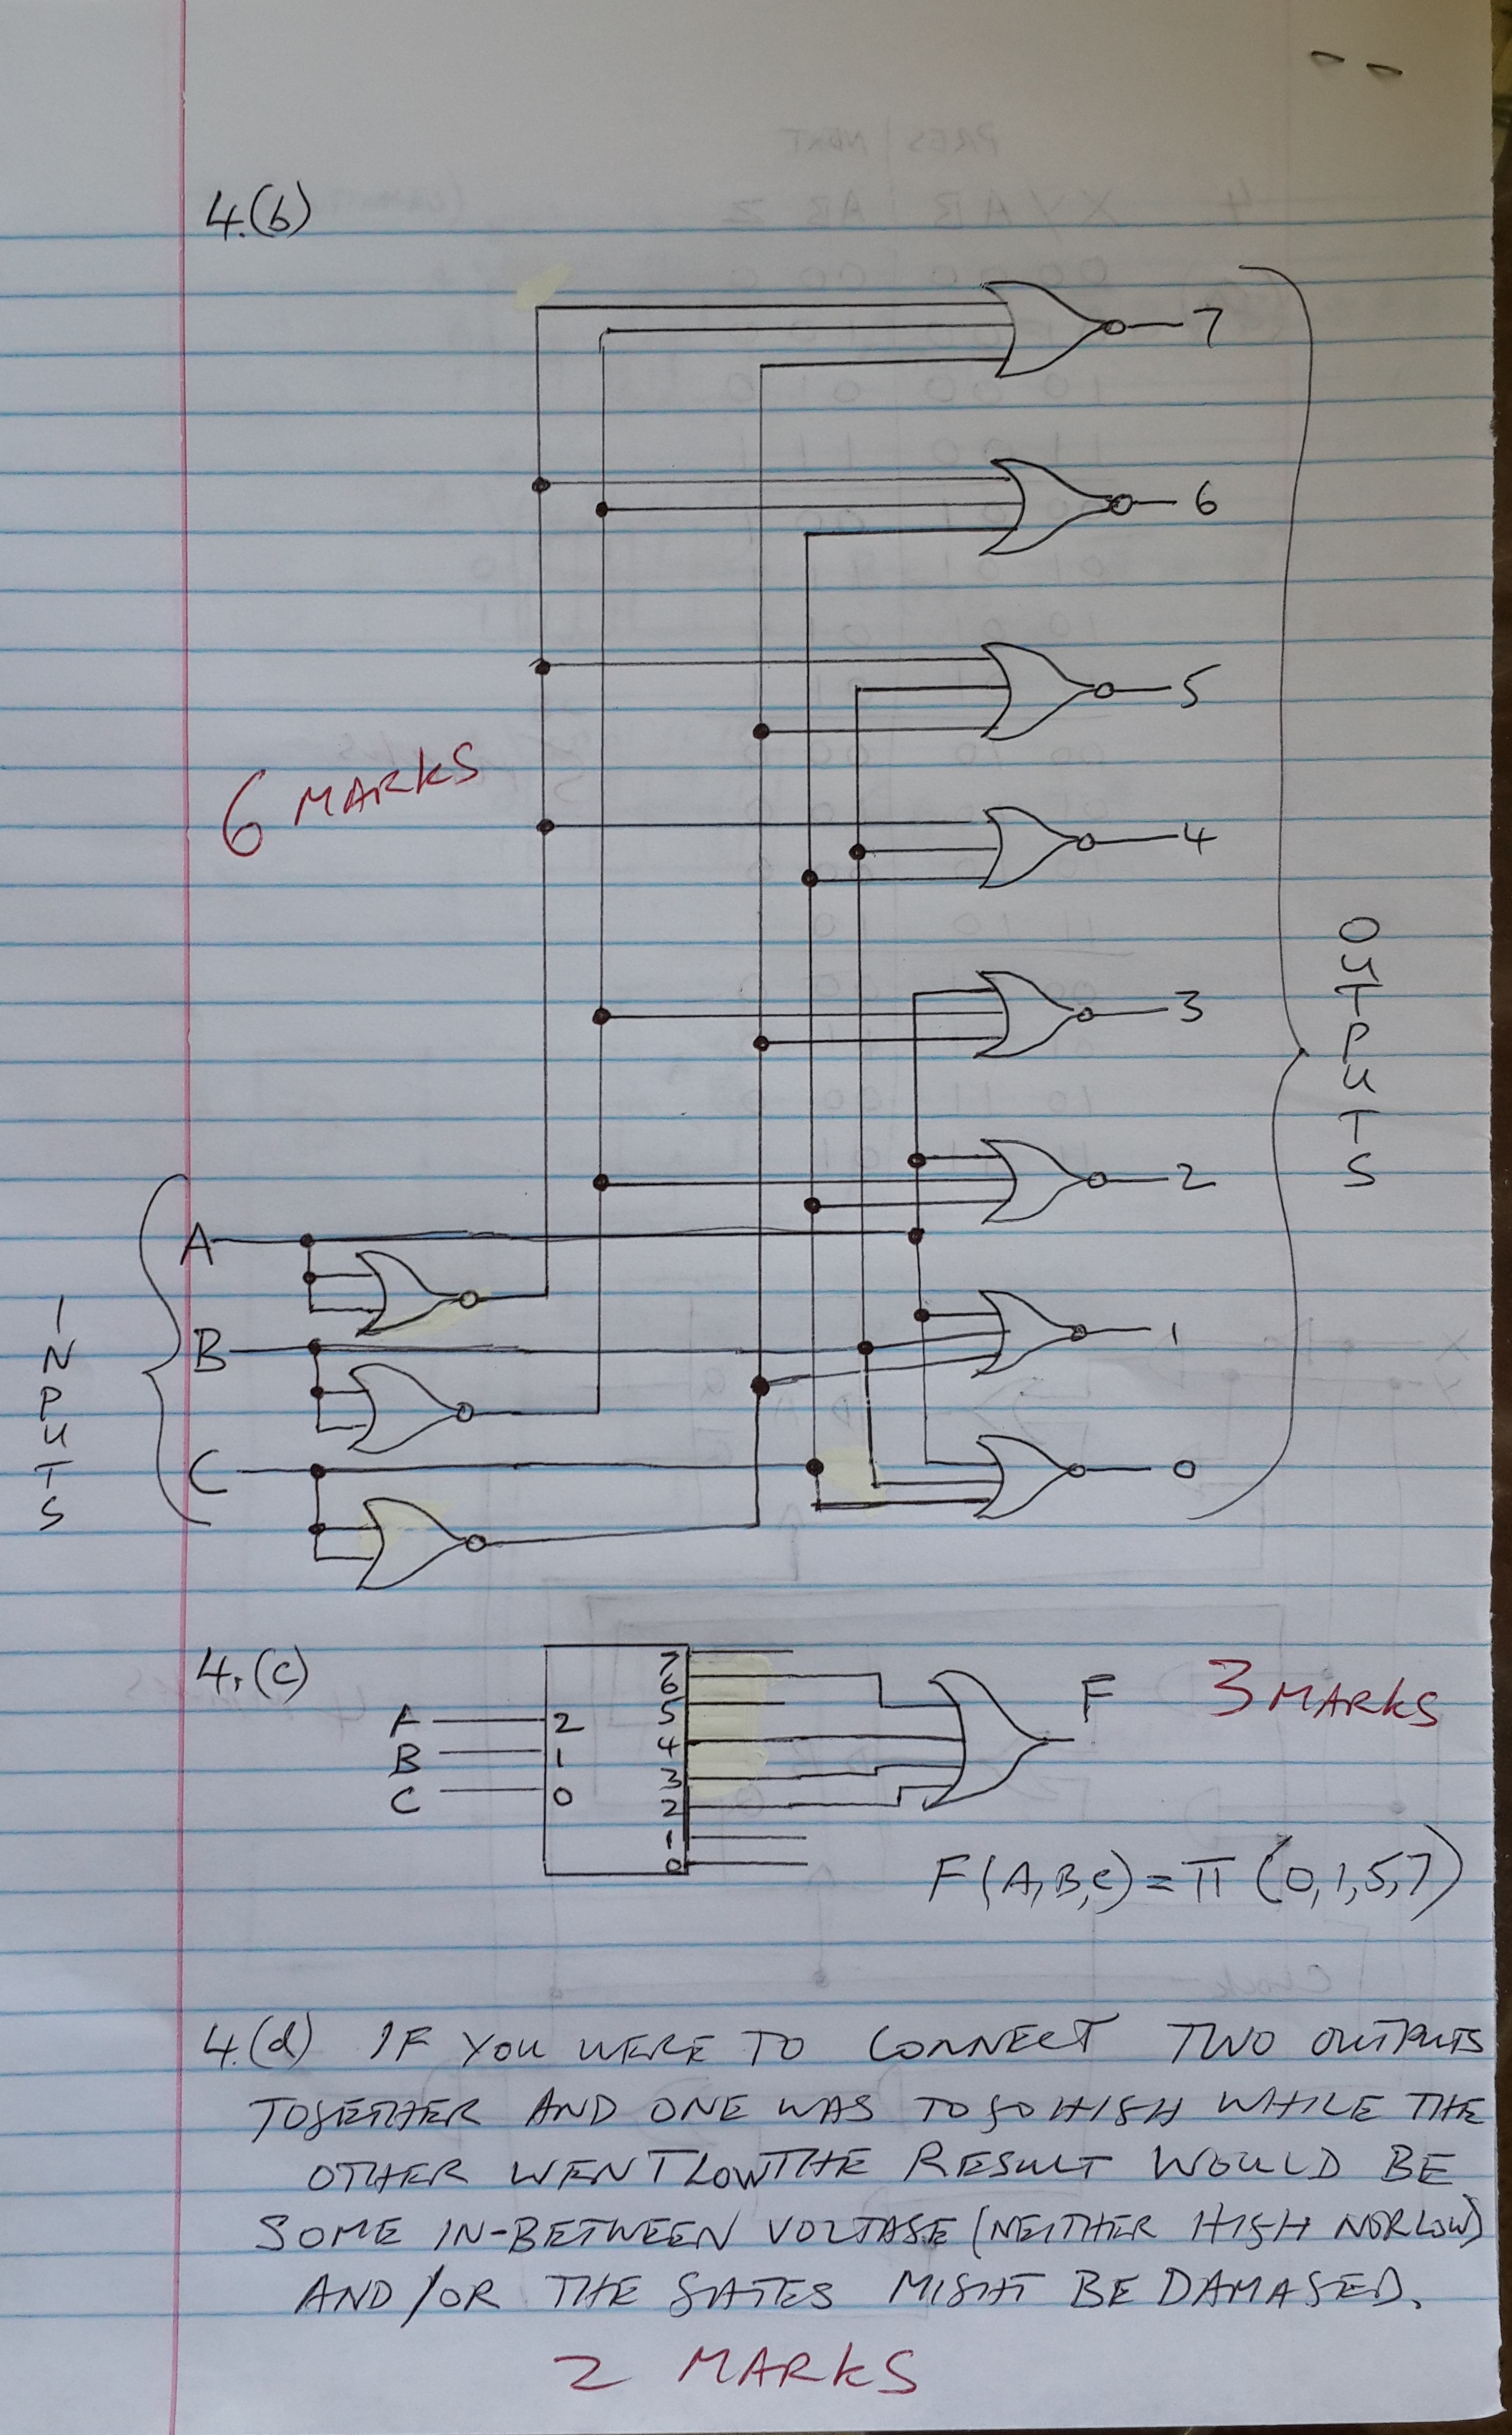 4.(b)
7
6
5
6 MARKS
4
3
2
1
0
OUTPUTS
INPUTS
A
B
C
4.(c)
A
B
C
2
1
0
7
6
5
4
3
2
1
0
F
3 MARKS
F(A,B,C) = π (0,1,5,7)
4.(d) IF YOU WERE TO CONNECT TWO OUTPUTS
TOGETHER AND ONE WAS TO GO HIGH WHILE THE
OTHER WENT LOW THE RESULT WOULD BE
SOME IN-BETWEEN VOLTAGE (NEITHER HIGH NOR LOW)
AND/OR THE GATES MIGHT BE DAMAGED.
2 MARKS